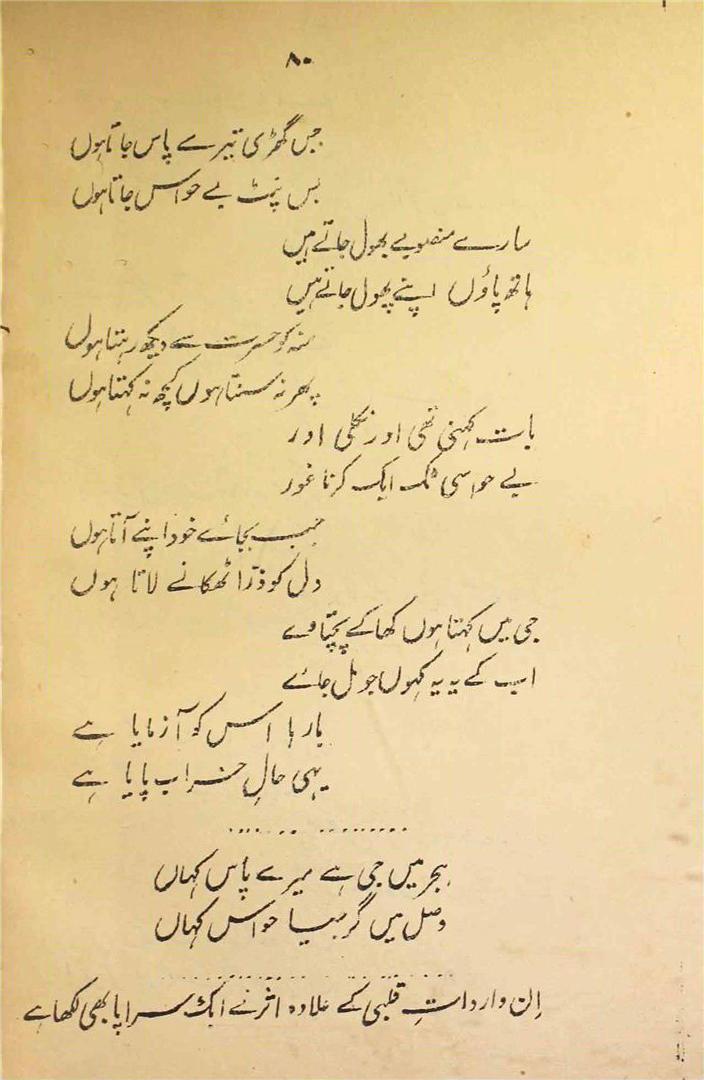 ۸۰
جس گھڑی تیرے پاس جاتا ہوں
بس نپٹ بے حواس جاتا ہوں
سارے منصوبے بھول جاتے ہیں
ہاتھ پاؤں اپنے پھول جاتے ہیں
منہ کو حسرت سے دیکھ رہتا ہوں
پھر نہ سنتا ہوں کچھ نہ کہتا ہوں
بات کہنی تھی اور نکلی اور
بے حواسی ٹک ایک کرنا غور
جب بجائے خود اپنے آتا ہوں
دل کو ذرا ٹھکانے لاتا ہوں
جی میں کہتا ہوں کھا کے پچتاوے
اب کے یہ یہ کہوں جو مل جائے
بارہا اس کو آزمایا ہے
یہی حالِ خراب پایا ہے
ہجر میں جی ہے میرے پاس کہاں
وصل میں گر جیا حواس کہاں
اِن وارداتِ قلبی کے علاوہ اثر نے ایک سراپا بھی لکھا ہے